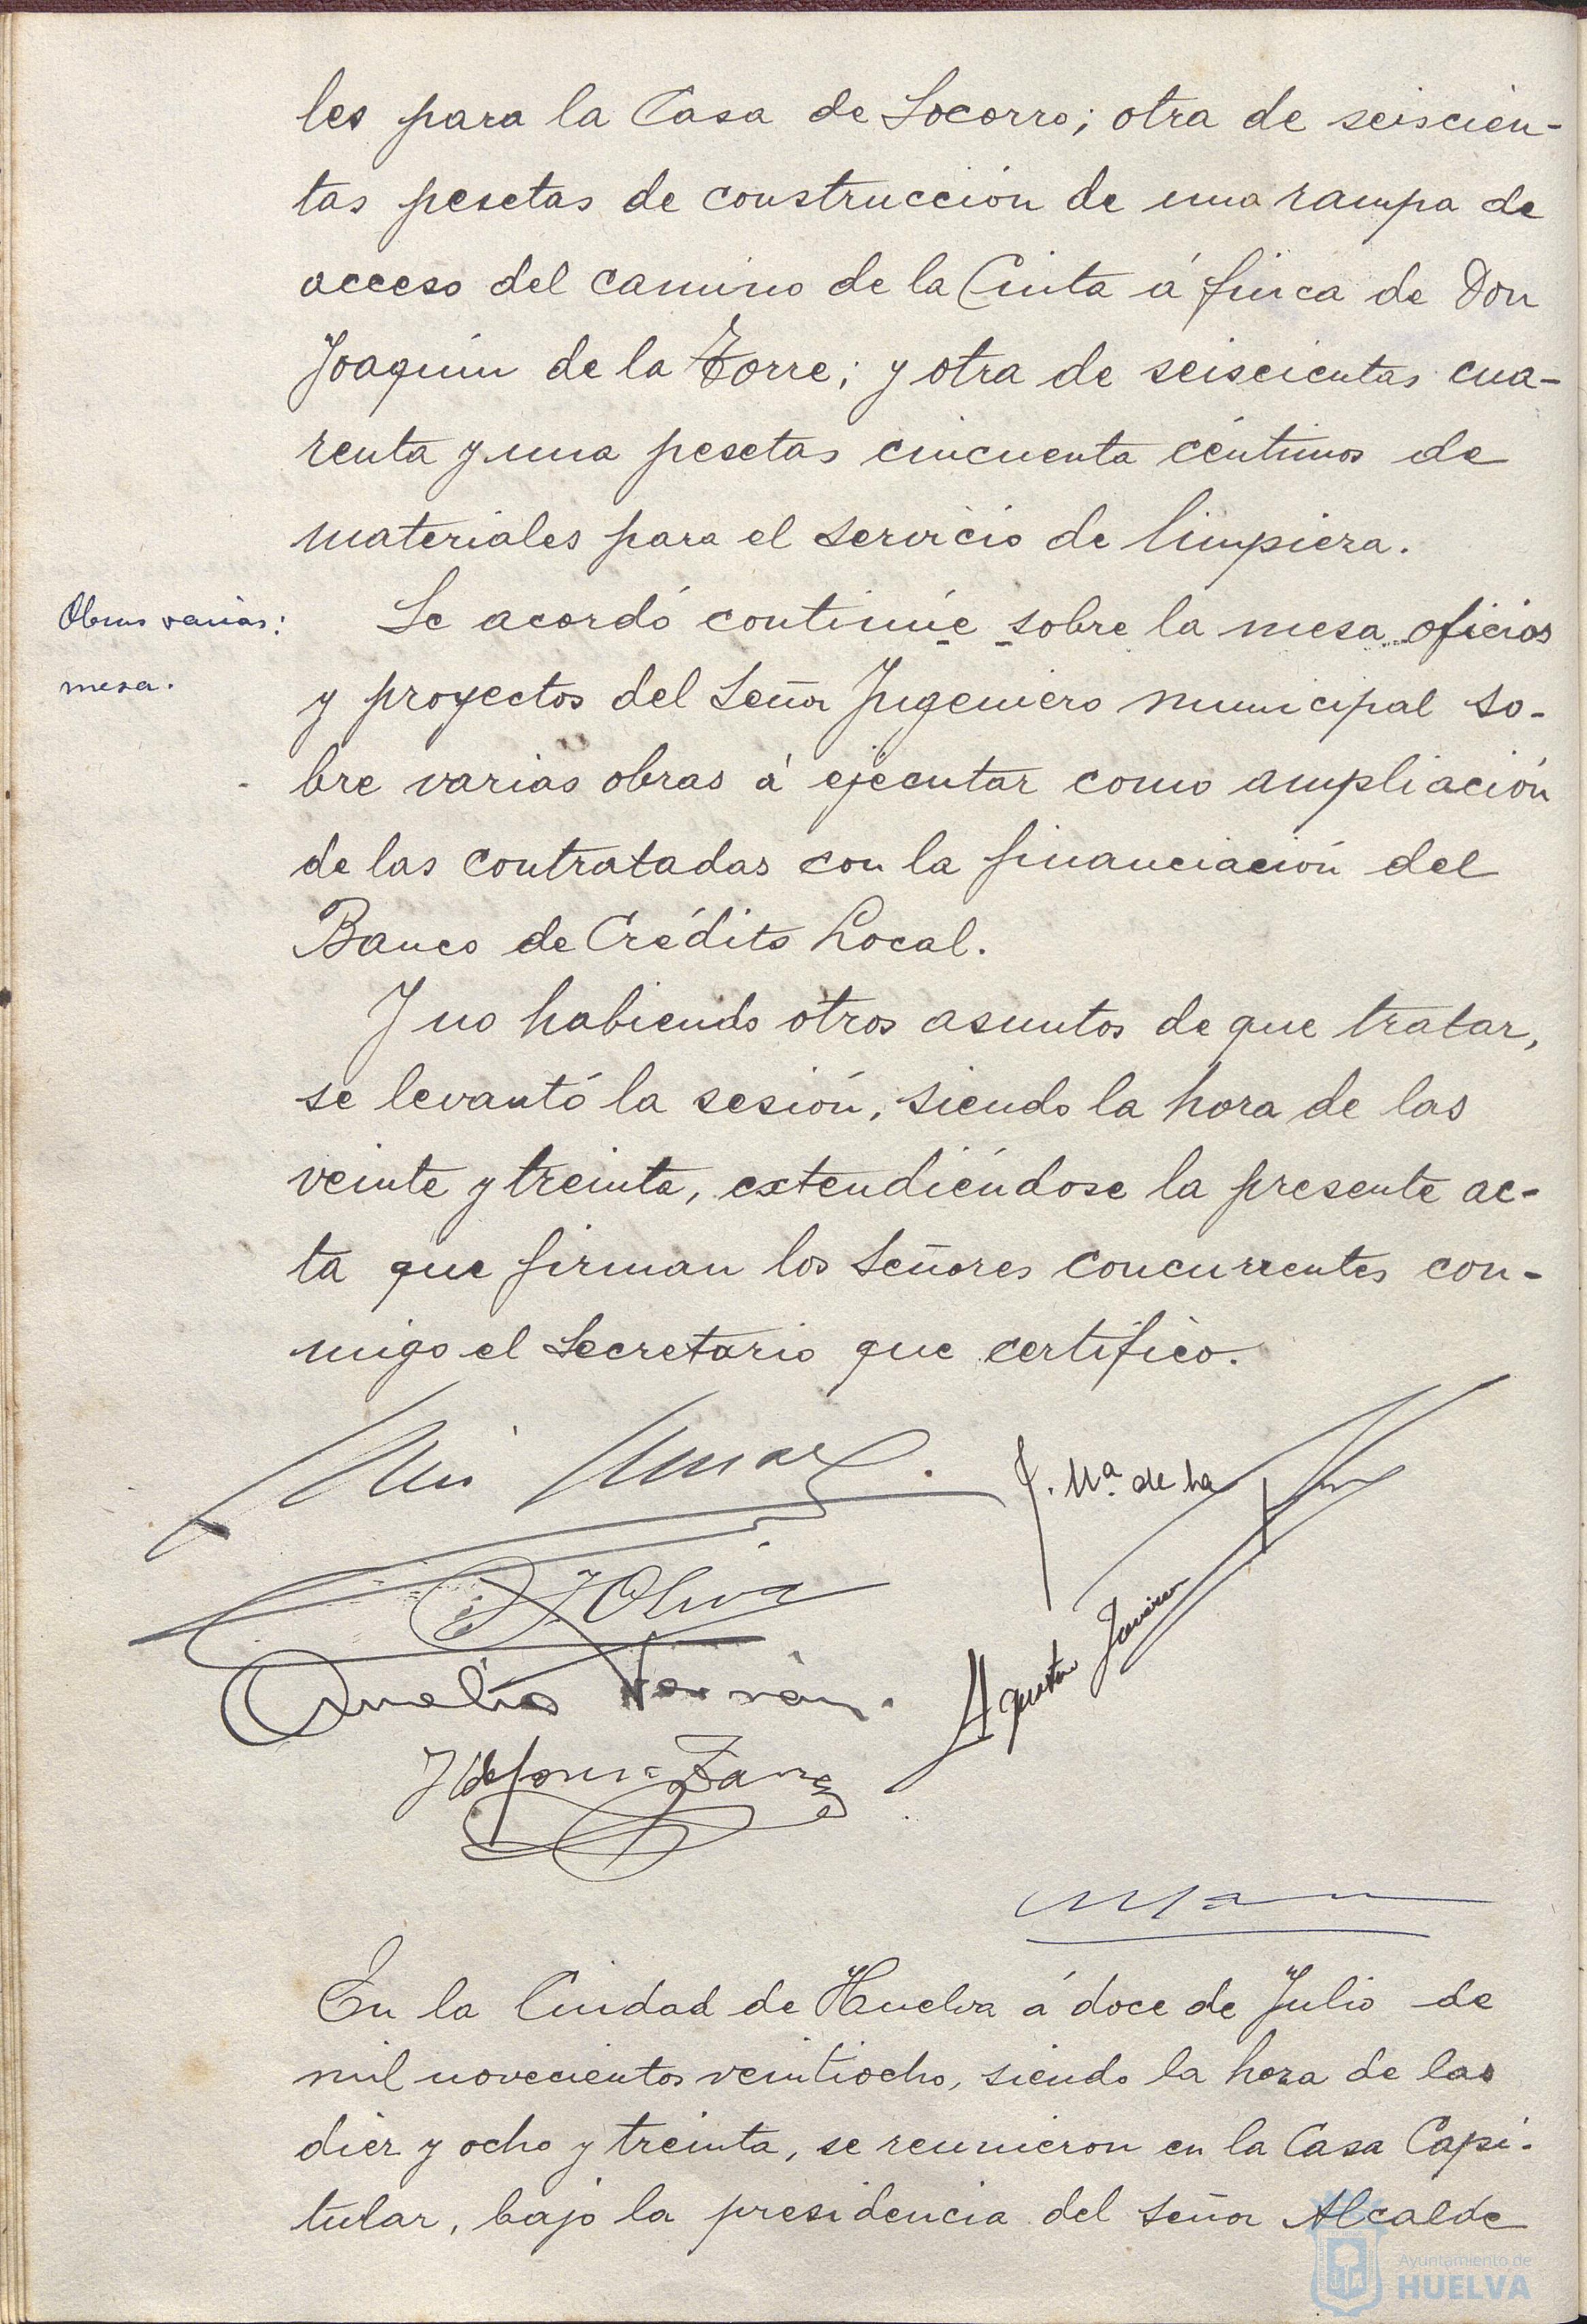 les para la Casa de Socorro; otra de seiscien-
tas pesetas de construcción de una rampa de
acceso del camino de la Cinta á finca de Don
Joaquín de la Torre; y otra de seiscientas cua-
renta y una pesetas cincuenta céntimos de
materiales para el servicio de limpieza.
Obras varias:
mesa.
Se acordó continúe sobre la mesa oficios
y proyectos del Señor Ingeniero municipal so-
bre varias obras á ejecutar como ampliación
de las contratadas con la financiación del
Banco de Crédito Local.
Y no habiendo otros asuntos de que tratar,
se levantó la sesión, siendo la hora de las
veinte y treinta, extendiéndose la presente ac-
ta que firman los Señores concurrentes con-
migo el Secretario que certifico.
J. Mª. de la
Oliva
Aurelio
Agustin Jimenez
Ildefonso
En la Ciudad de Huelva á doce de Julio de
mil novecientos veintiocho, siendo la hora de las
diez y ocho y treinta, se reunieron en la Casa Capi-
tular, bajo la presidencia del Señor Alcalde
Ayuntamiento de
HUELVA